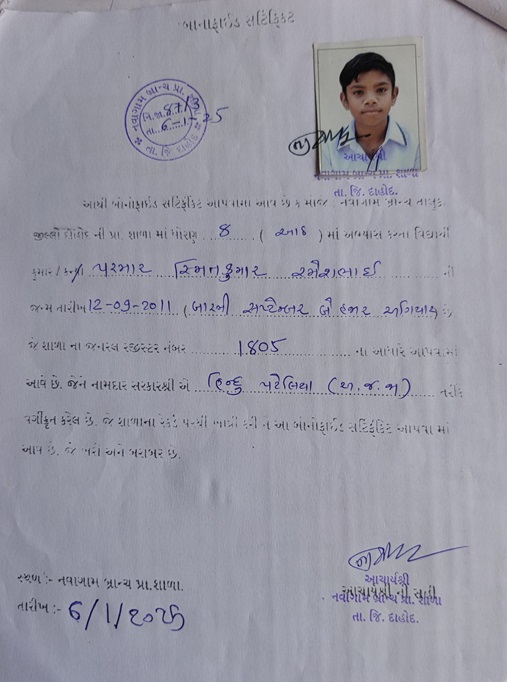 બોનાફાઈડ સર્ટિફિકેટ
નવાગામ બ્રાન્ચ પ્રા.
નિ.જા. 87/3
તા. 6-1-25
તા. જિ. દાહોદ
આચાર્યશ્રી
નવાગામ બ્રાન્ચ પ્રા. શાળા
તા. જિ. દાહોદ.
આથી બોનાફાઈડ સર્ટિફિકેટ આપવામા આવે છે કે મોજે : નવાગામ બ્રાન્ચ તાલુકે
જીલ્લો દાહોદ ની પ્રા. શાળા માં ધોરણ 8 ( આઠ ) માં અભ્યાસ કરતા વિદ્યાર્થી
કુમાર / કન્યા પરમાર સ્મિતકુમાર રમેશભાઈ ની
જન્મ તારીખ 12-09-2011 ( બારમી સપ્ટેમ્બર બે હજાર અગિયાર છે
જે શાળા ના જનરલ રજીસ્ટર નંબર 1805 ના આધારે આપવામાં
આવે છે. જેને નામદાર સરકારશ્રી એ હિન્દુ પટેલિયા (અ.જ.જા) તરીકે
વર્ગીકૃત કરેલ છે. જે શાળાના રેકર્ડ પરથી ખાત્રી કરી ને આ બોનોફાઈડ સર્ટિફિકેટ આપવા માં
આવે છે. જે ખરી અને બરાબર છે.
સ્થળ :- નવાગામ બ્રાન્ચ પ્રા.શાળા.
તારીખ :- 6/1/2025
આચાર્યશ્રી
આચાર્યશ્રી ની સહી
નવાગામ બ્રાન્ચ પ્રા. શાળા
તા. જિ. દાહોદ.